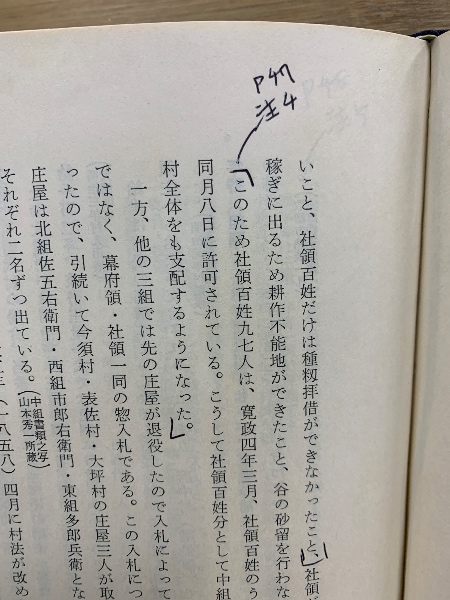 P47
注4
いこと、社領百姓だけは種籾拝借ができなかったこと、社領
稼ぎに出るため耕作不能地ができたこと、谷の砂留を行わな
このため社領百姓九七人は、寛政四年三月、社領百姓のう
同月八日に許可されている。こうして社領百姓分として中組
村全体をも支配するようになった。
一方、他の三組では先の庄屋が退役したので入札によって
ではなく、幕府領・社領一同の惣入札である。この入札につ
ったので、引続いて今須村・表佐村・大坪村の庄屋三人が取
庄屋は北組佐五右衛門・西組市郎右衛門・東組多郎兵衛とな
それぞれ二名ずつ出ている。（中組書類之写 山本秀一所蔵）
（一八五八）四月に村法が改め